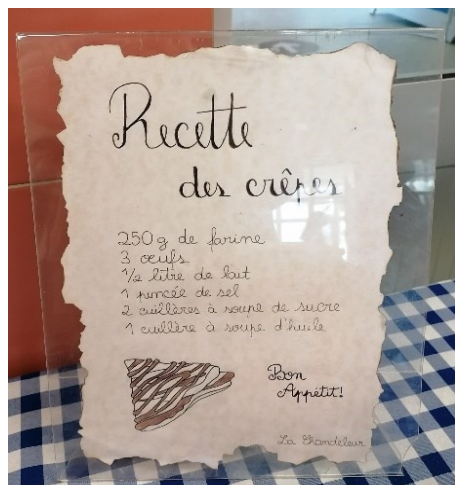 Recette
des crêpes
250 g de farine
3 œufs
1/2 litre de lait
1 pincée de sel
2 cuillères à soupe de sucre
1 cuillère à soupe d'huile
Bon
Appétit!
La Chandeleur